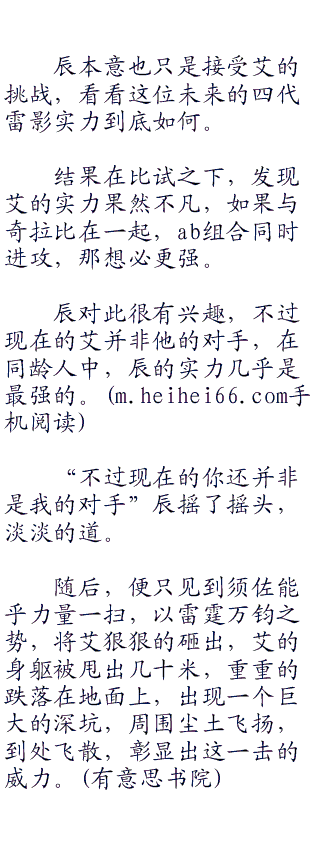 辰本意也只是接受艾的
挑战，看看这位未来的四代
雷影实力到底如何。
结果在比试之下，发现
艾的实力果然不凡，如果与
奇拉比在一起，ab组合同时
进攻，那想必更强。
辰对此很有兴趣，不过
现在的艾并非他的对手，在
同龄人中，辰的实力几乎是
最强的。(m.heihei66.com手
机阅读)
“不过现在的你还并非
是我的对手”辰摇了摇头，
淡淡的道。
随后，便只见到须佐能
乎力量一扫，以雷霆万钧之
势，将艾狠狠的砸出，艾的
身躯被甩出几十米，重重的
跌落在地面上，出现一个巨
大的深坑，周围尘土飞扬，
到处飞散，彰显出这一击的
威力。(有意思书院)